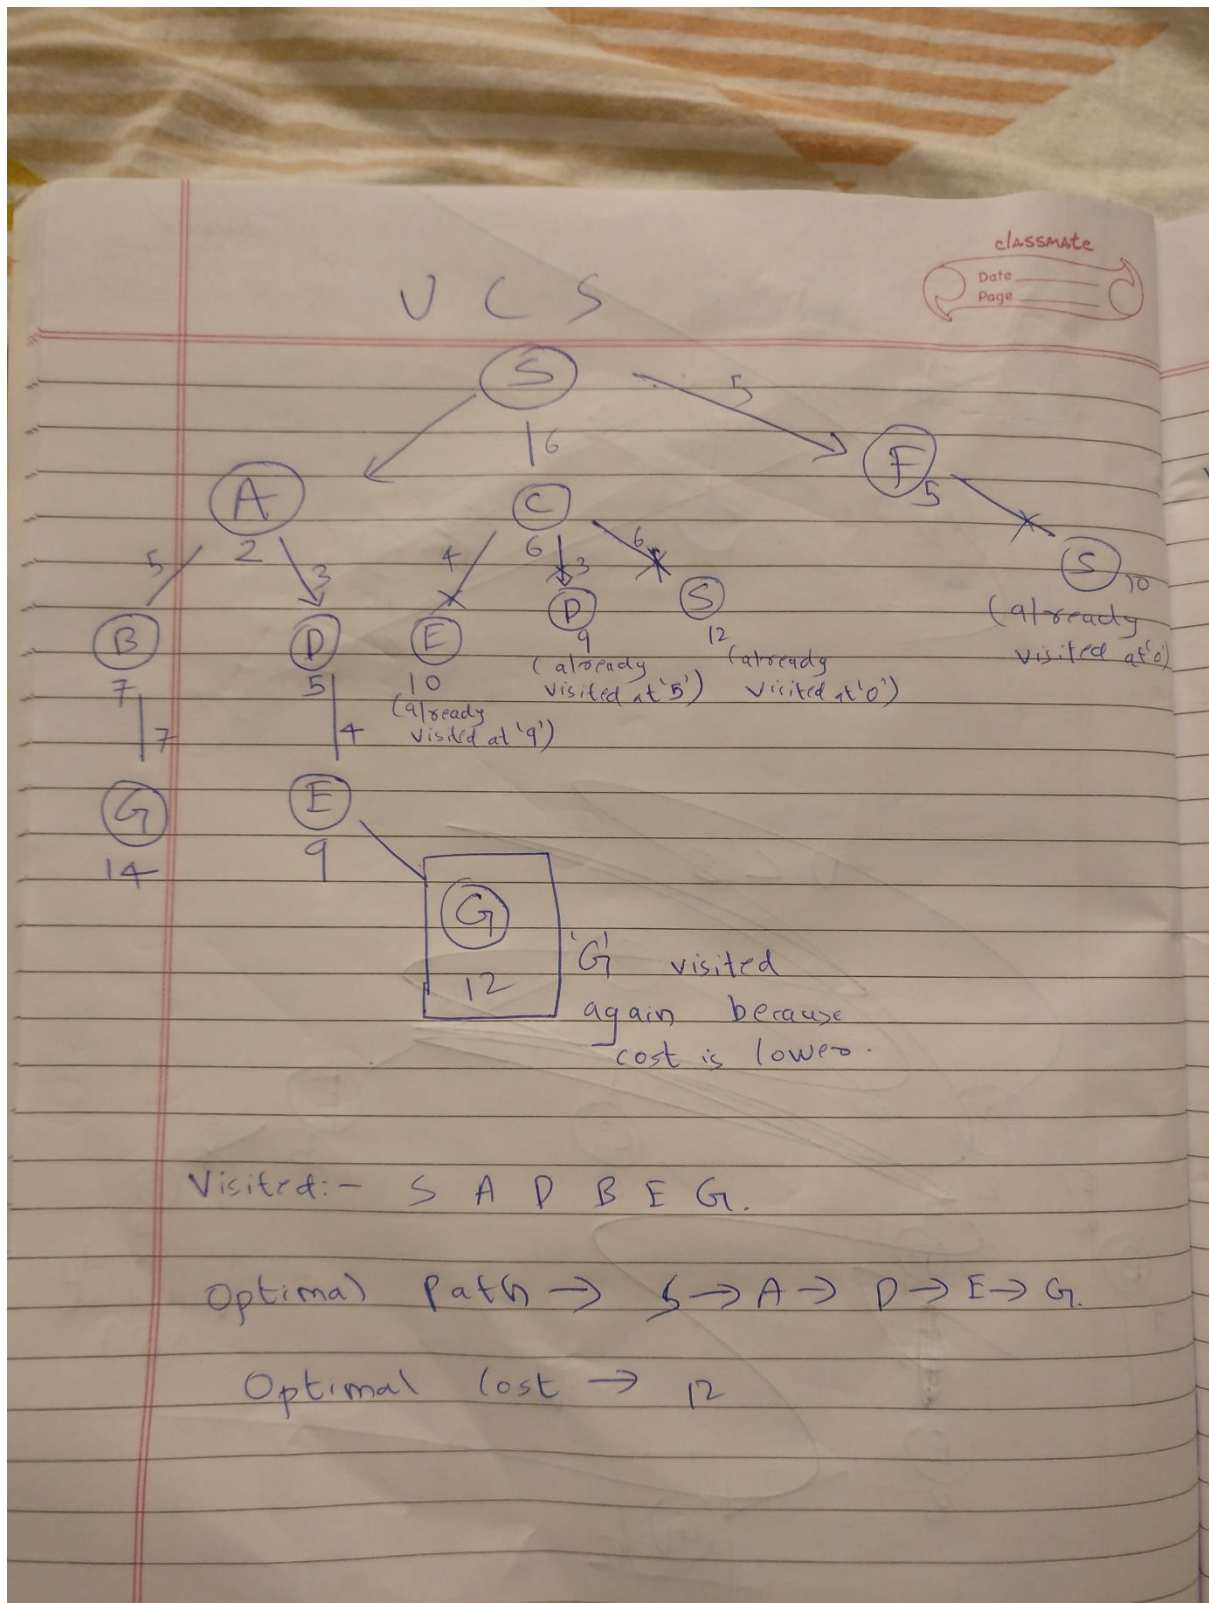 classmate
Date
Page
UCS
S
5
6
A
2
C
6
F
5
5
3
4
3
6
S
10
(already
visited at '0')
B
7
D
5
E
10
(already
visited at '9')
D
9
(already
visited at '5')
S
12
(already
visited at '0')
7
4
G
14
E
9
G
12
'G' visited
again because
cost is lower.
Visited:- S A D B E G.
Optimal Path → S → A → D → E → G.
Optimal Cost → 12